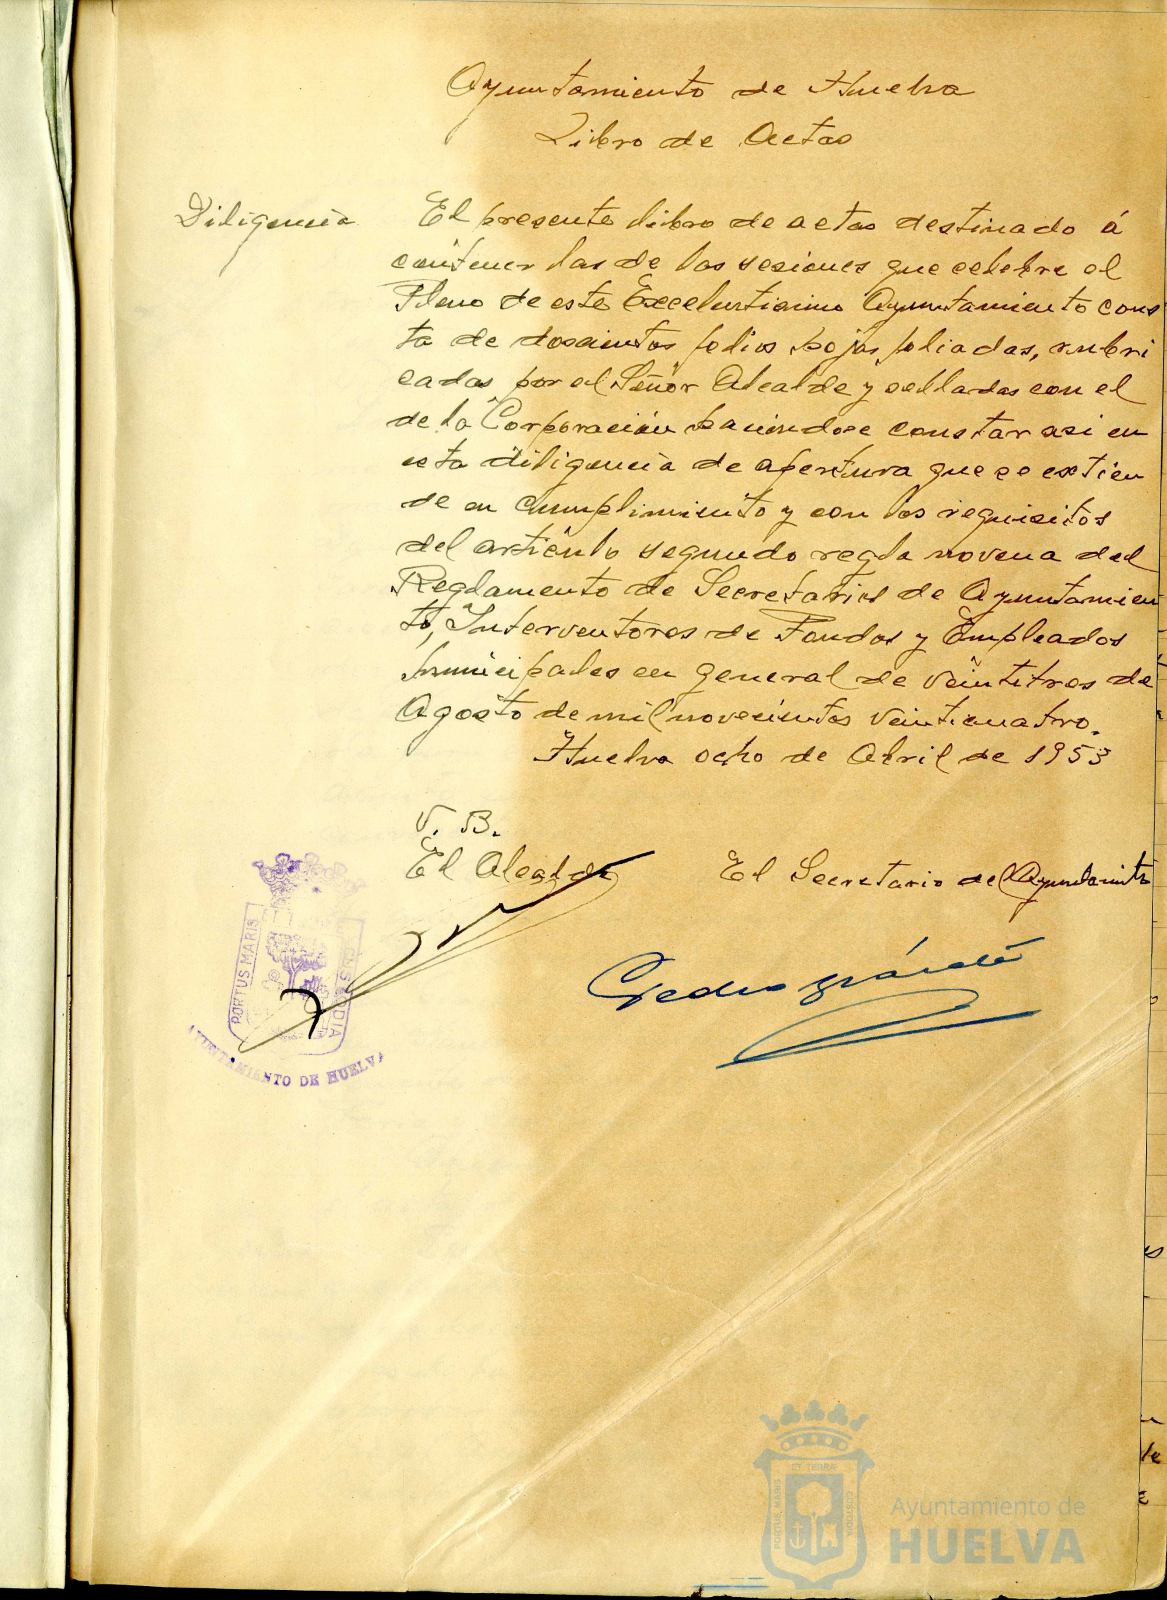 Ayuntamiento de Huelva
Libro de Actas
Diligencia El presente libro de actas destinado á
contener las de las sesiones que celebre el
Pleno de este Excelentisimo Ayuntamiento cons
ta de doscientos folios hojas foliadas, rubri
cadas por el Señor Alcalde y selladas con el
de la Corporación haciendose constar asi en
esta diligencia de apertura que se extien
de en cumplimiento y con los requisitos
del articulo segundo regla novena del
Reglamento de Secretarios de Ayuntamien
to, Interventores de Fondos y Empleados
municipales en general de veintitres de
Agosto de mil novecientos veinticuatro.
Huelva ocho de Abril de 1953
V. B.
El Alcalde El Secretario del Ayuntamito
PORTUS MARIS
CUSTODIA
AYUNTAMIENTO DE HUELVA
Pedro
PORTUS MARIS ET TERRA CUSTODIA
Ayuntamiento de
HUELVA